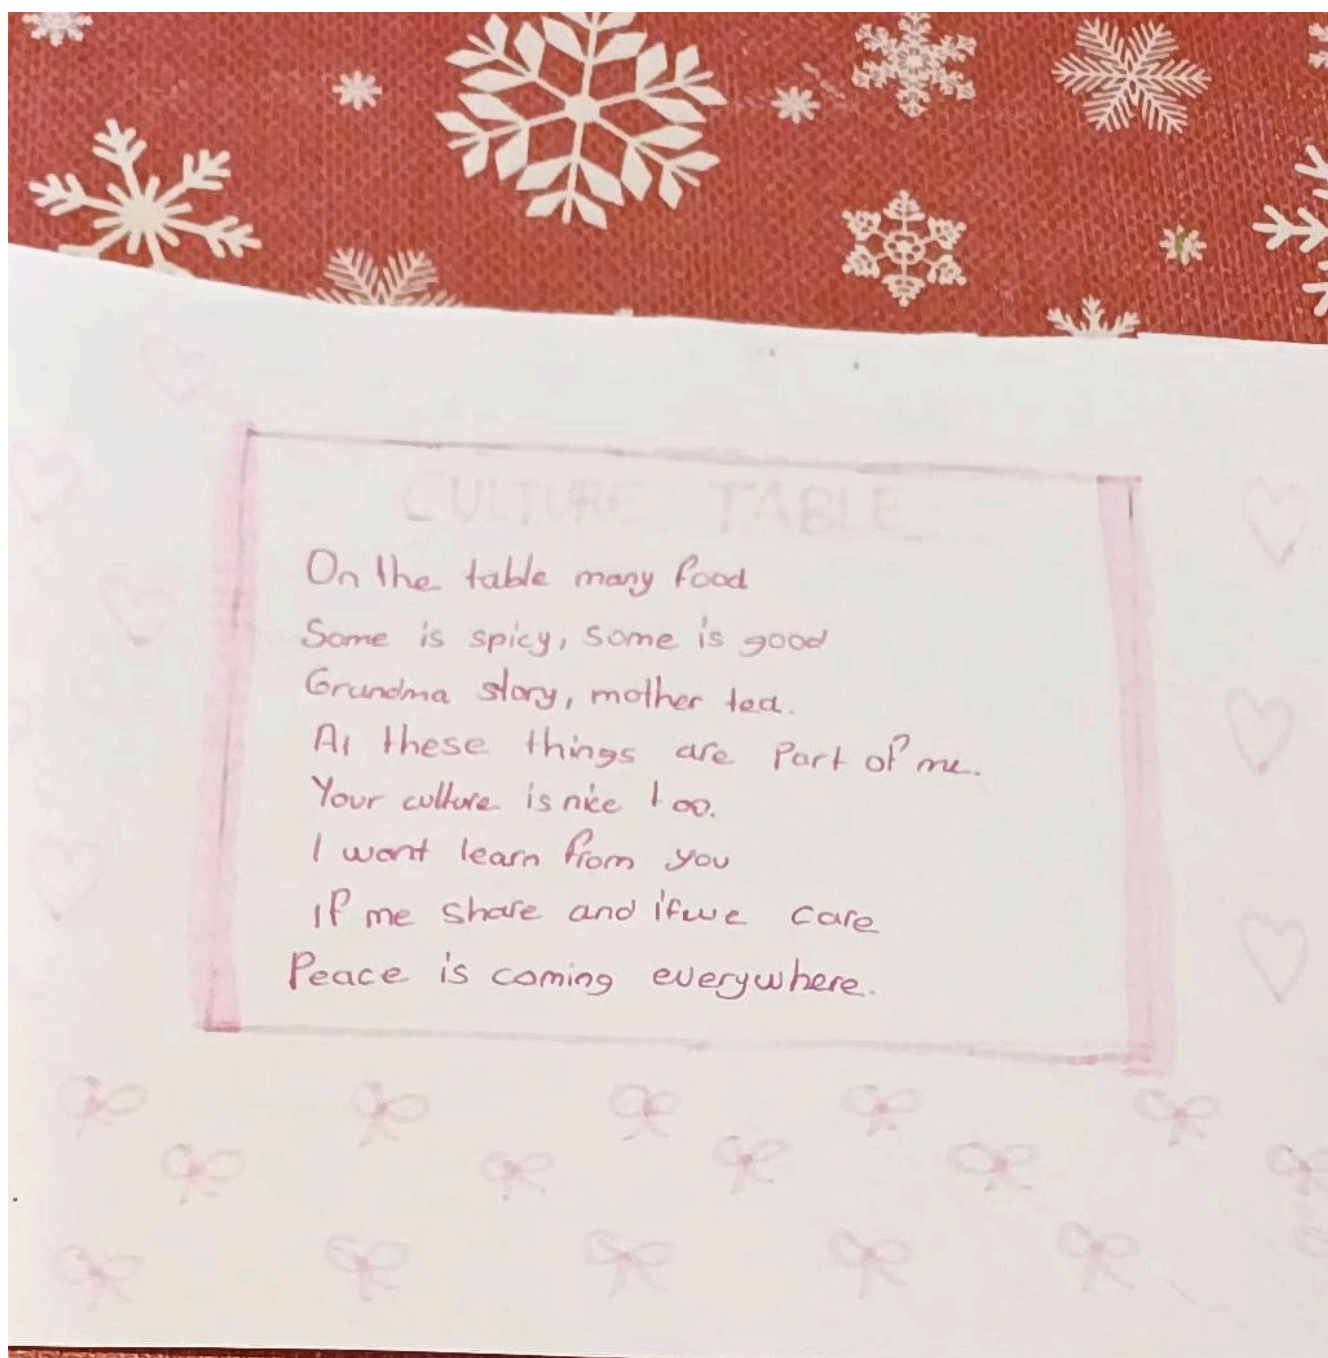 CULTURE TABLE
On the table many food
Some is spicy, some is good
Grandma story, mother tea.
Al these things are Part of me.
Your culture is nice too.
I want learn from you
If me share and if we care
Peace is coming everywhere.